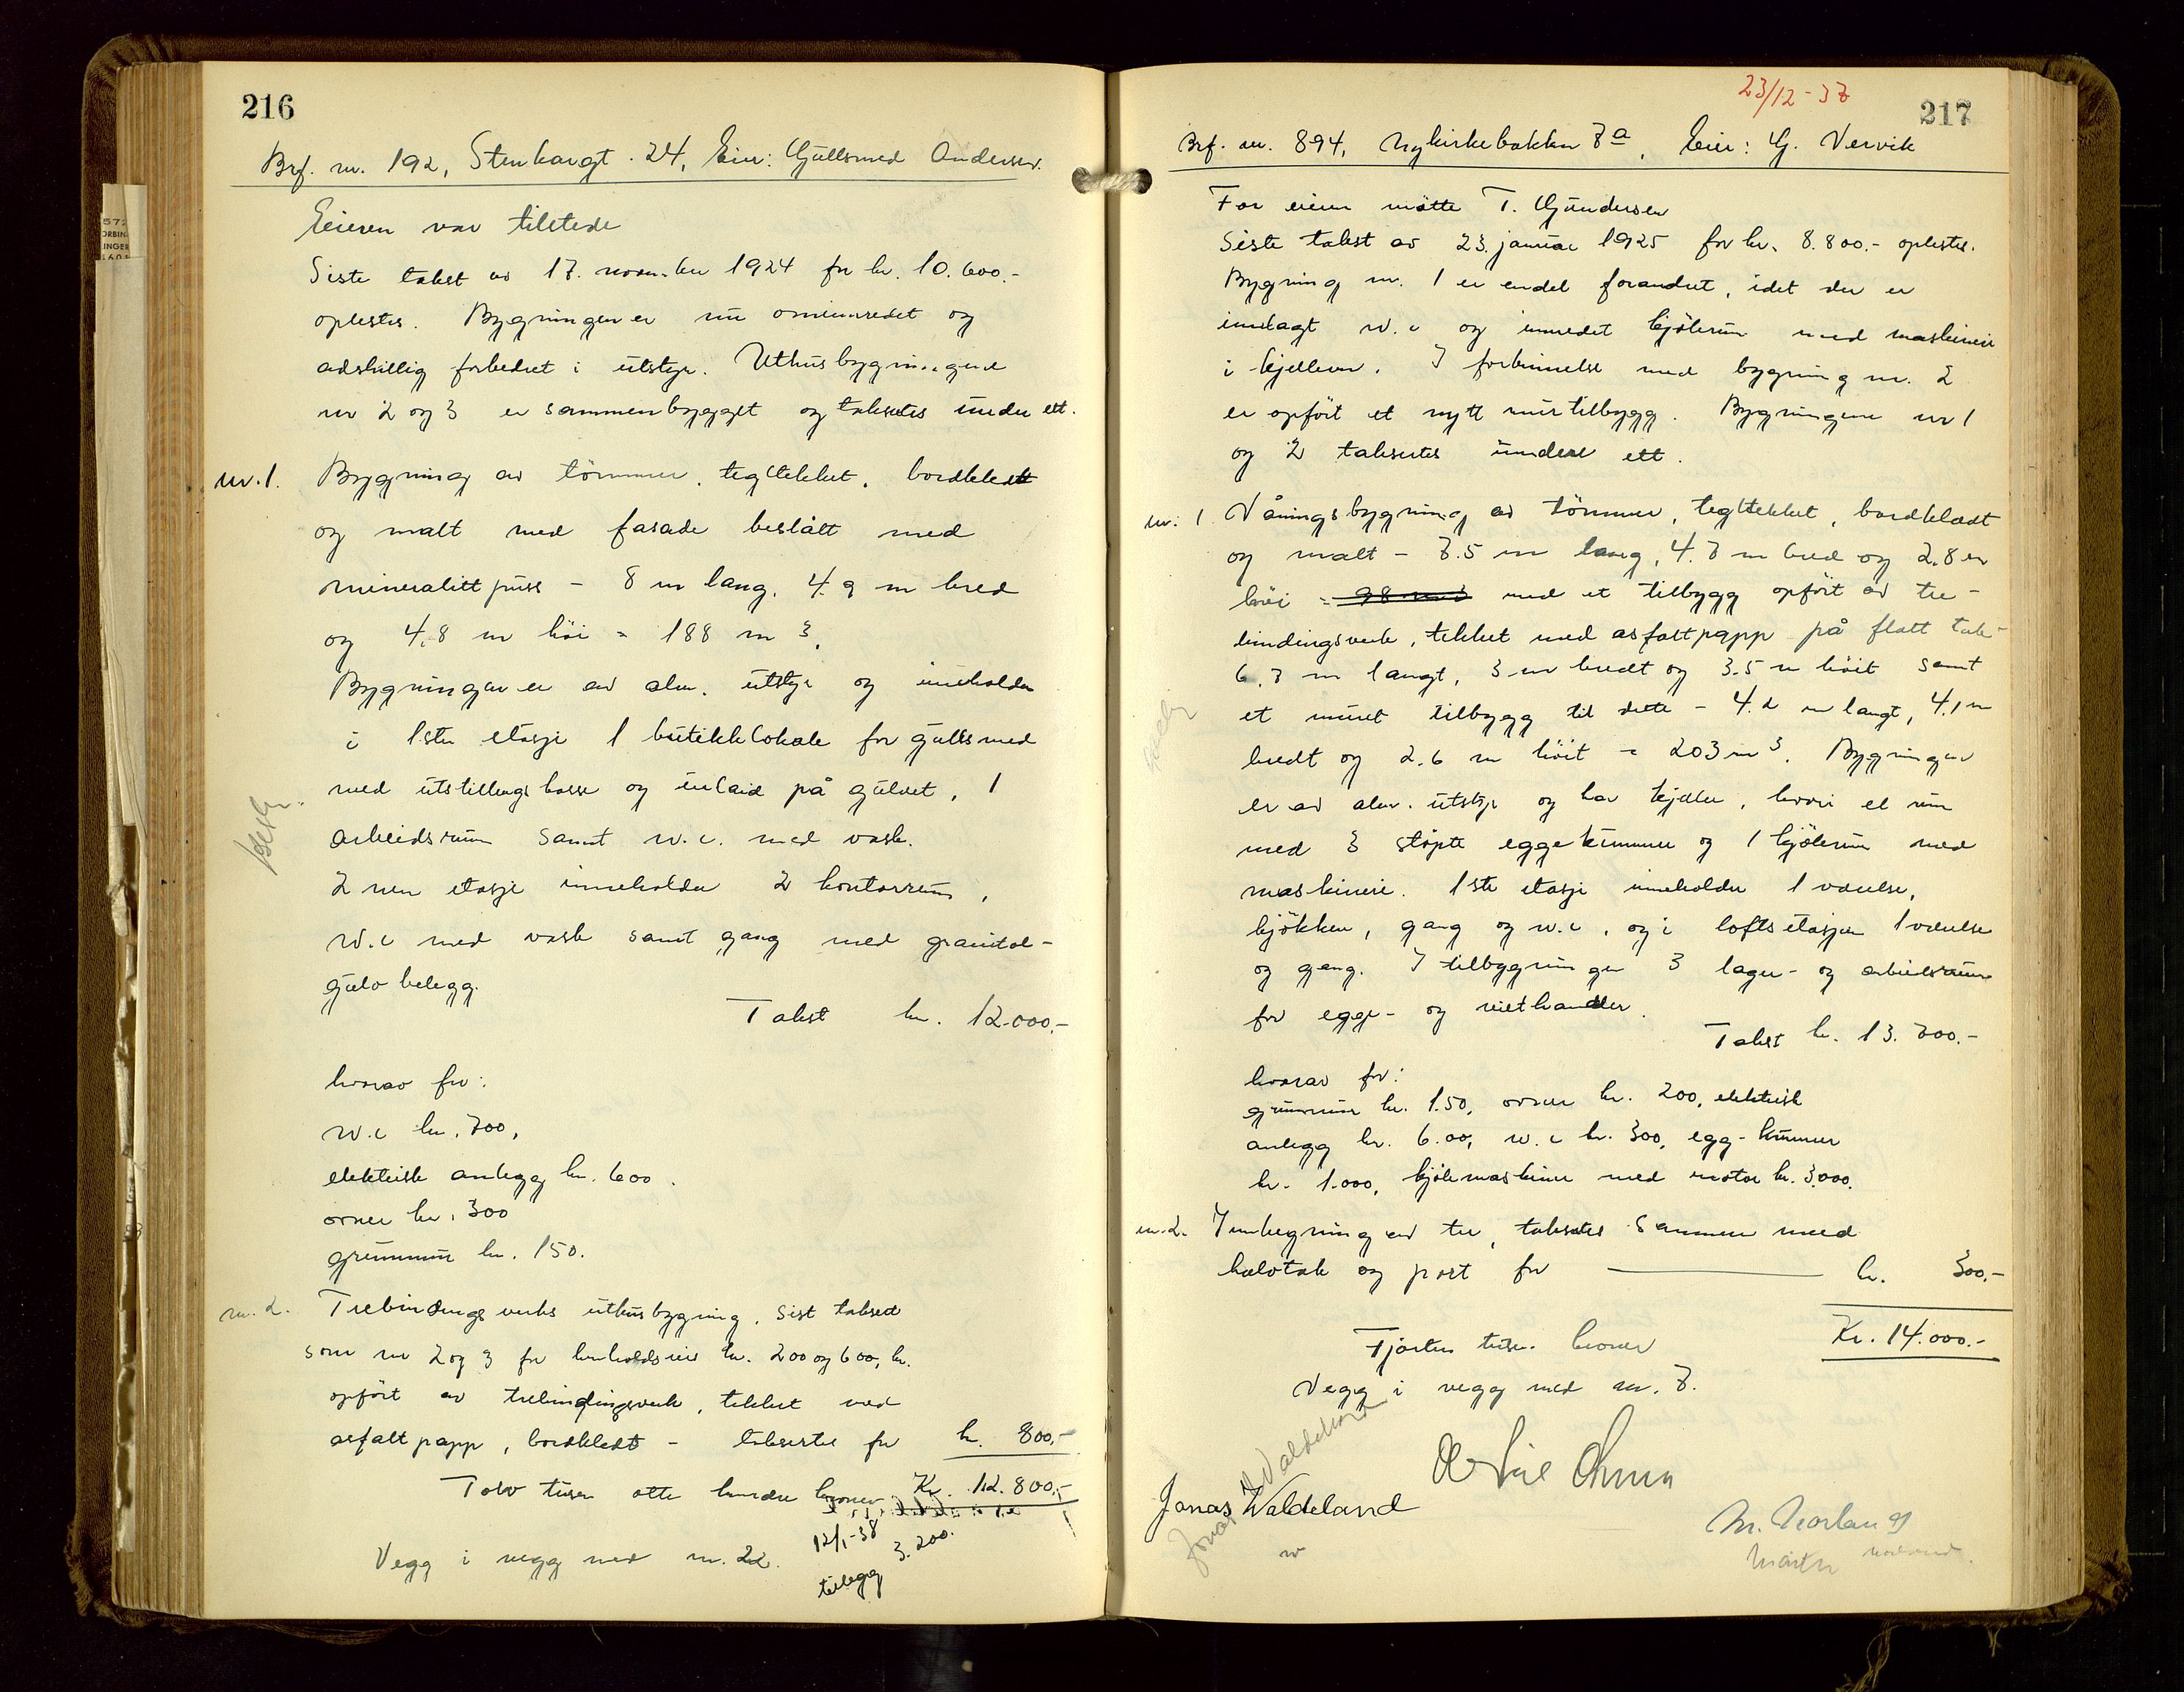 216
Brf. nr. 192, Stenkargt. 24, Eier: Gullsmed Andersen.
Eieren var tilstede
Siste takst av 17. november 1924 for kr. 10.600.-
oplestes. Bygningen er nu ominnredet og
adskillig forbedret i utstyr. Uthusbygningene
nr 2 og 3 er sammenbygget og takseres under ett.
nr. 1. Bygning av tømmer, tegltekket, bordkledt
og malt med fasade beslått med
mineralittpuss - 8 m lang, 4.9 m bred
og 4.8 m höi = 188 m3.
Bygningen er av alm. utstyr og inneholder
i 1ste etasje 1 butikklokale for gullsmed
med utstillingskasse og inlaid på gulvet, 1
arbeidsrum samt w.c. med vask.
2nen etasje inneholder 2 kontorrum,
w.c med vask samt gang med granitol-
gulvbelegg.
Takst kr. 12.000.-
hvorav for:
w.c kr. 700,
elektrisk anlegg kr. 600.
ovner kr. 300
grunnmur kr. 150.
nr. 2. Trebindingsverks uthusbygning, sist taksert
som nr 2 og 3 for henholdsvis kr. 200 og 600, kr.
opfört av trebindingsverk, tekket med
asfaltpapp, bordkledt - takseres for kr. 800.-
Tolv tusen otte hundre kroner Kr. 12.800.-
12/1-38
Vegg i vegg med nr. 22.
tillegg 3.200.
23/12-37
217
Brf. nr. 894, Nykirkebakken 7a, Eier: G. Vervik
For eieren mötte T. Gundersen
Siste takst av 23. januar 1925 for kr. 8.800.- oplestes.
Bygning nr. 1 er endel forandret, idet der er
innlagt w.c og innredet kjölerum med maskineri
i kjelleren. I forbinnelse med bygning nr. 2
er opfört et nytt murtilbygg. Bygningene nr 1
og 2 takseres under ett.
nr. 1 Våningsbygning av tömmer, tegltekket, bordklædt
og malt - 7.5 m lang, 4.7 m bred og 2.8 m
höi = 98 m3 med et tilbygg opfört av tre-
bindingsverk, tekket med asfaltpapp på flatt tak -
6.7 m langt, 3 m bredt og 3.5 m höit samt
et muret tilbygg til dette - 4.2 m langt, 4.1 m
bredt og 2.6 m höit = 203 m3. Bygningen
er av alm. utstyr og har kjeller, hvori et rum
med 3 støpte eggekummer og 1 kjölerum med
maskineri. 1ste etasje inneholder 1 værelse,
kjökken, gang og w.c, og i loftsetasjen 1 værelse
og gang. I tilbygningen 3 lager- og arbeidsrum
for egge- og vilthandler.
Takst kr. 13.700.-
hvorav for:
grunnmur kr. 150, ovner kr. 200, elektrisk
anlegg kr. 600, w.c kr. 300, egg-kummer
kr. 1.000, kjölemaskiner med motor kr. 3.000.
nr. 2. Innbygning av tre, takseres sammen med
halvtak og port for kr. 300.-
Fjorten tusen kroner Kr. 14.000.-
Vegg i vegg med nr. 7.
Jonas Waldeland
M. Norland